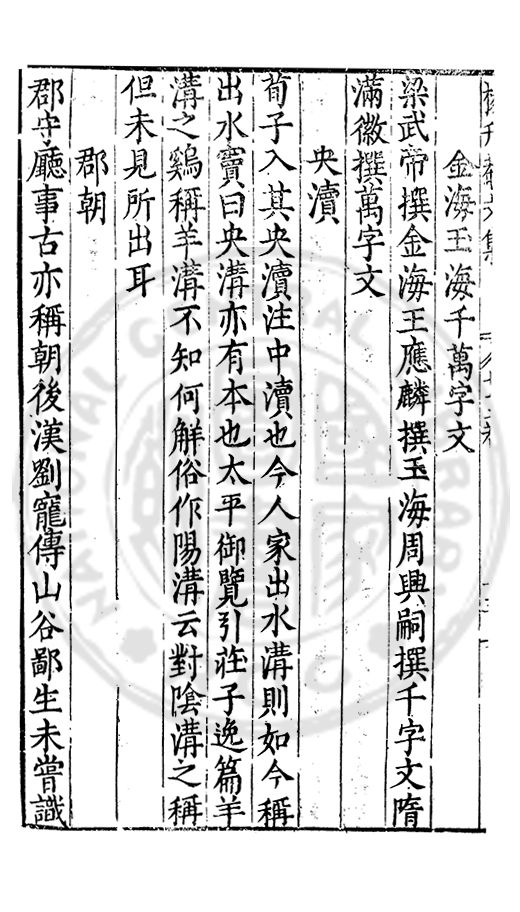 金海玉海千萬字文
梁武帝撰金海王應麟撰玉海周興嗣撰千字文隋
滿徽撰萬字文
央瀆
荀子入其央瀆注中瀆也今人家出水溝則如今稱
出水竇曰央溝亦有本也太平御覽引莊子逸篇羊
溝之鷄稱羊溝不知何解俗作陽溝云對陰溝之稱
但未見所出耳
郡朝
郡守廳事古亦稱朝後漢劉寵傳山谷鄙生未嘗識
NATIONAL CENTRAL LIBRARY